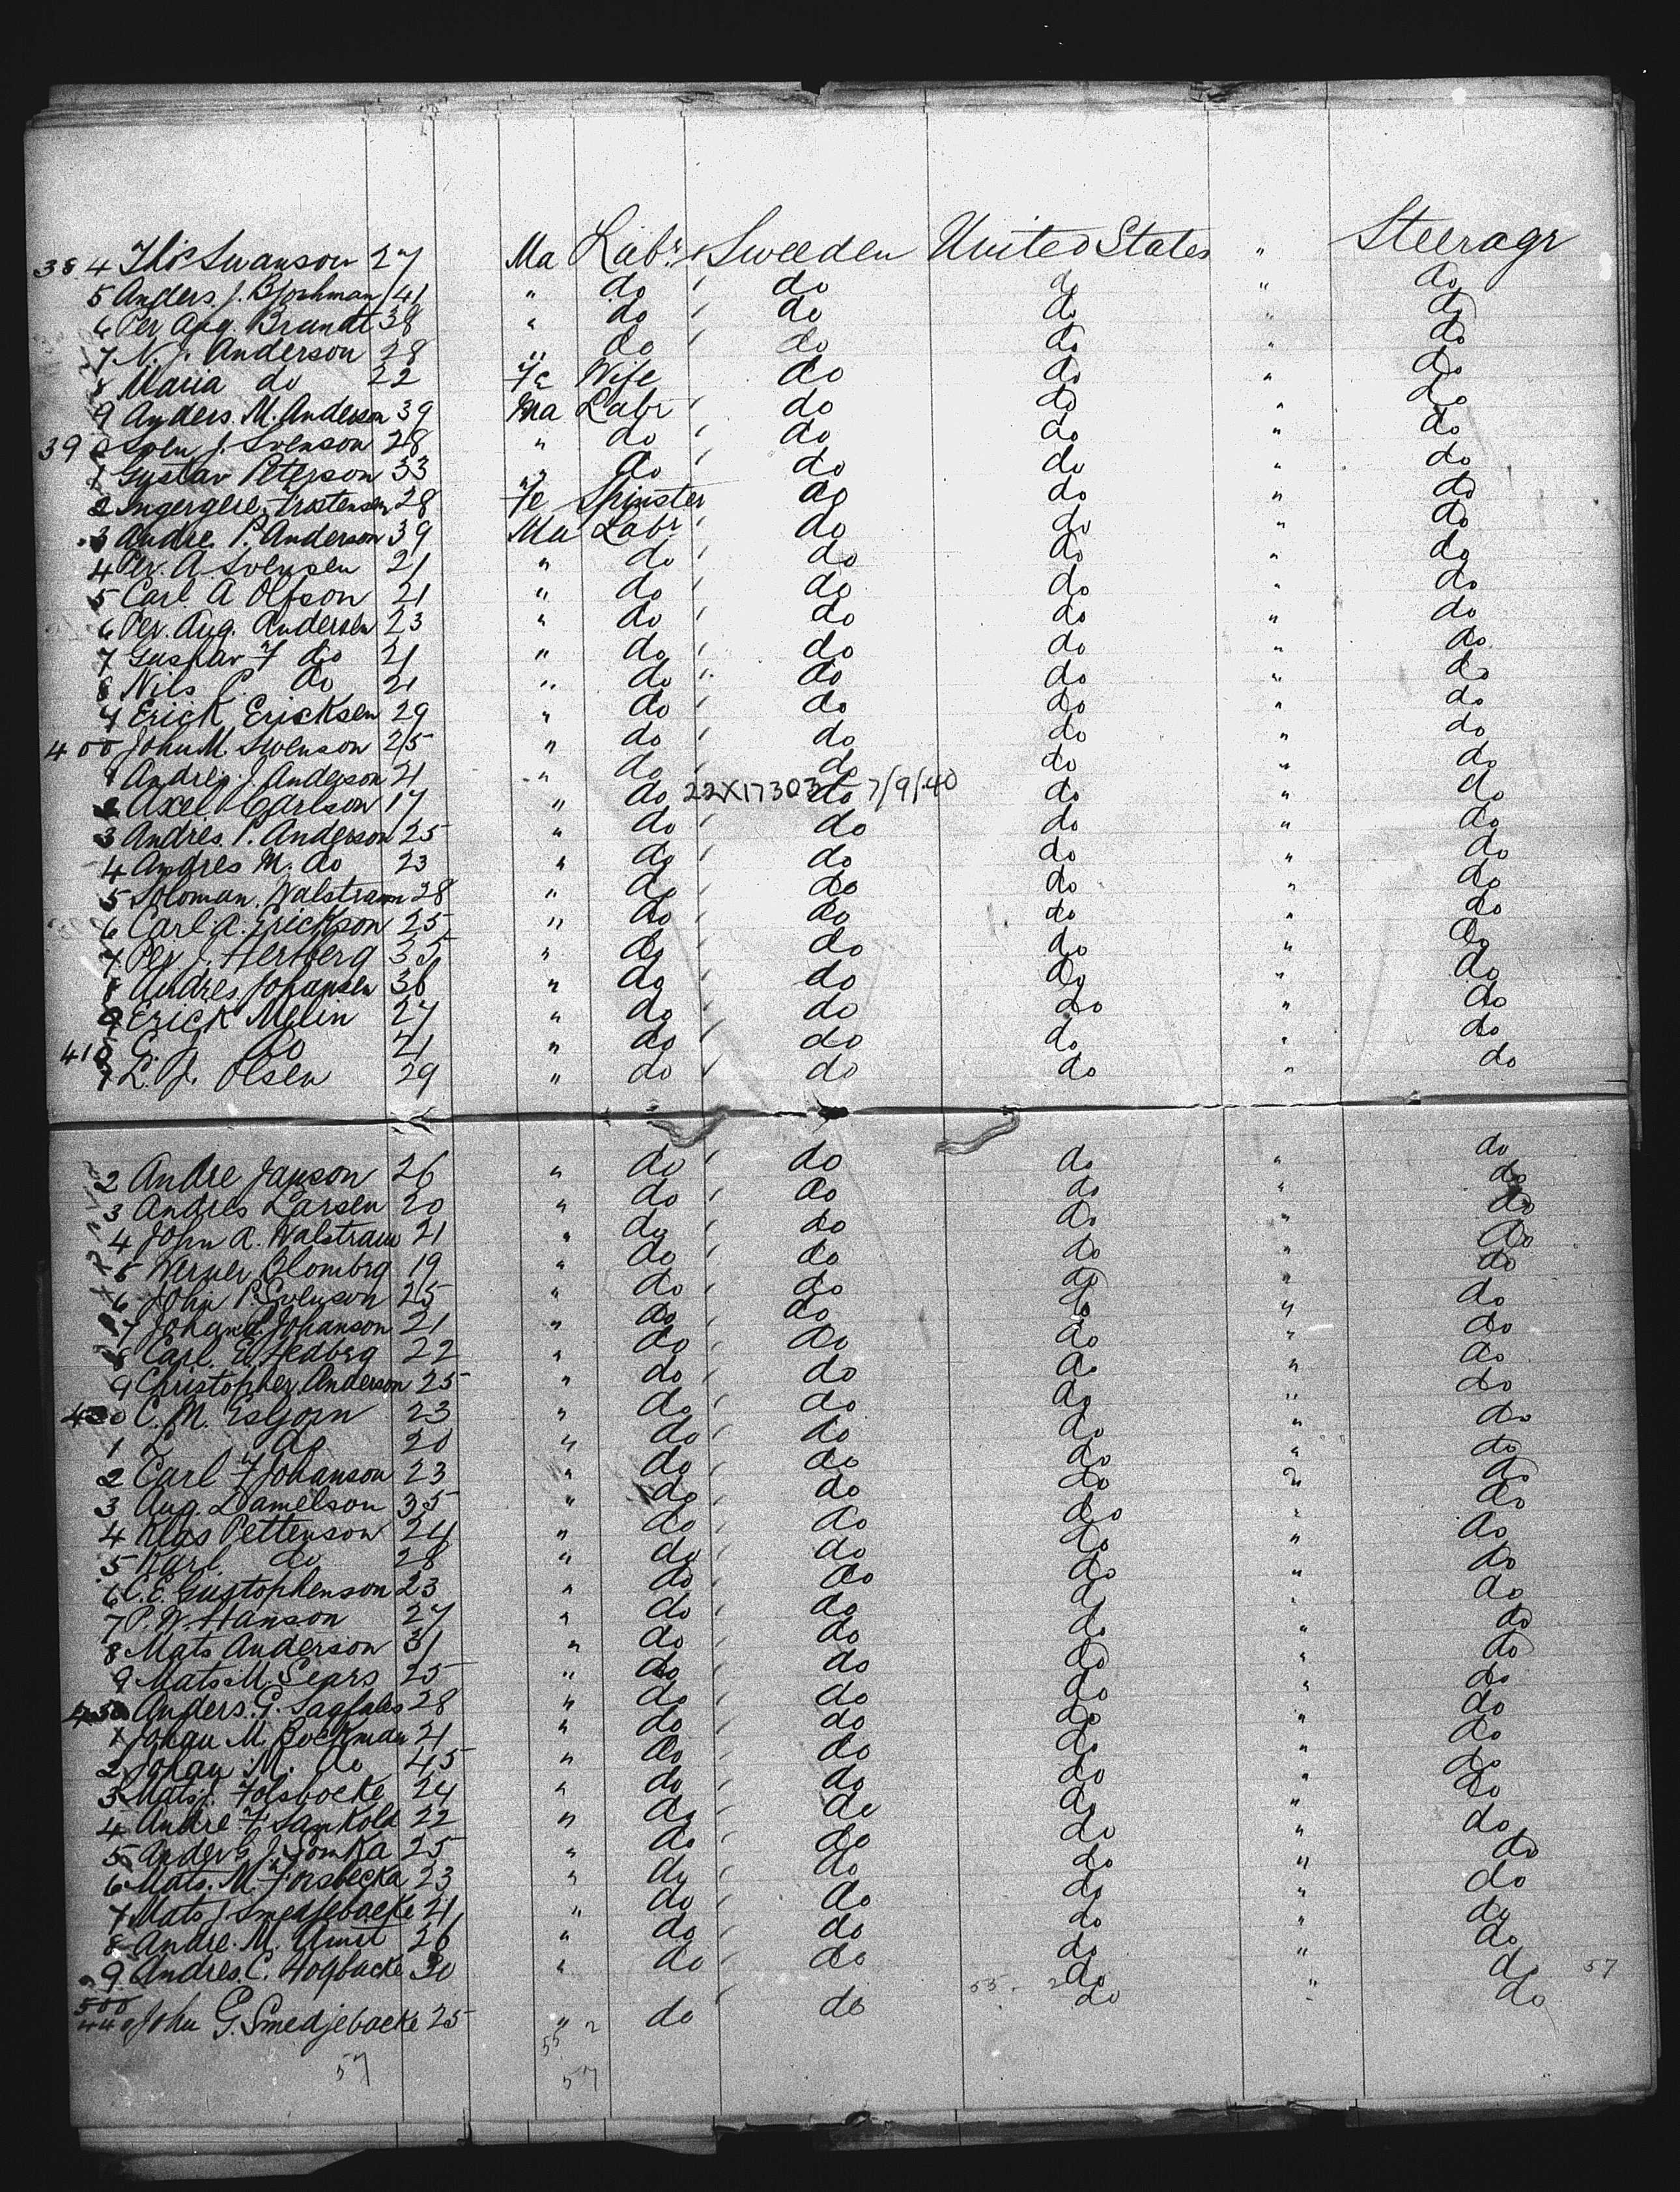 384 Swanson 27 Ma Labr Sweeden United States " Steerage
5 Anders. J. 41 " do do do " do
6 Per Aug. Brandt 38 " do do do " do
7 N. J. Anderson 28 " do do do " do
8 Maria do 22 Fe Wife do do " do
9 Anders. M. Anderson 39 Ma Labr do do " do
390 Sven J. Svenson 28 " do do do " do
1 Gustav Peterson 33 " do do do " do
2 28 Fe Spinster do do " do
3 Andre. P. Anderson 39 Ma Labr do do " do
4 Per. A. Svensen 21 " do do do " do
5 Carl. A Olfson 21 " do do do " do
6 Per. Aug. Andersen 23 " do do do " do
7 Gustav F do 21 " do do do " do
8 Nils P. do 21 " do do do " do
9 Erick Ericksen 29 " do do do " do
400 John M. Swenson 25 " do do do " do
1 J. Anderson 21 " do do do " do
2 Axel Carlson 17 " do 22X17303 do 7/9/40 do " do
3 Andres. P. Anderson 25 " do do do " do
4 Andres M. do 23 " do do do " do
5 Soloman. Walstram 28 " do do do " do
6 Carl. A. Erickson 25 " do do do " do
7 Per. J. Hertberg 35 " do do do " do
8 Andres Johansen 36 " do do do " do
9 Erick Melin 27 " do do do " do
410 G. J. do 21 " do do do " do
1 L. J. Olsen 29 " do do do " do
2 Andre Janson 26 " do do do " do
3 Andres Larsen 20 " do do do " do
4 John A. Walstram 21 " do do do " do
5 Werner Blombrg 19 " do do do " do
6 John P. Svenson 25 " do do do " do
7 Johanson 21 " do do do " do
8 Carl. E. Hedbrg 22 " do do do " do
9 Christopher. Anderson 25 " do do do " do
420 C. M. Esbjorn 23 " do do do " do
1 L do 20 " do do do " do
2 Carl F Johanson 23 " do do do " do
3 Aug. Damelson 35 " do do do " do
4 Klas Pettenson 24 " do do do " do
5 Karl. do 28 " do do do " do
6 C. E. Gustophenson 23 " do do do " do
7 P. W. Hanson 27 " do do do " do
8 Mats Anderson 31 " do do do " do
9 Mats M. Sears 25 " do do do " do
Anders. G. 28 " do do do " do
1 Johan M. Bockman 21 " do do do " do
2 Johan M. do 45 " do do do " do
3 Mats J. Folsbocke 24 " do do do " do
4 Andre F. 22 " do do do " do
5 J. 25 " do do do " do
6 Mats. M. Forsbecka 23 " do do do " do
7 Mats J. Smedjebacke 21 " do do do " do
8 Andre. M. 26 " do do do " do
9 Andres. C. Hogbacke 30 " do do 55. 2 do " do 57
500
440 John G. Smedjebacke 25 " 2 do do do do
55
57 57